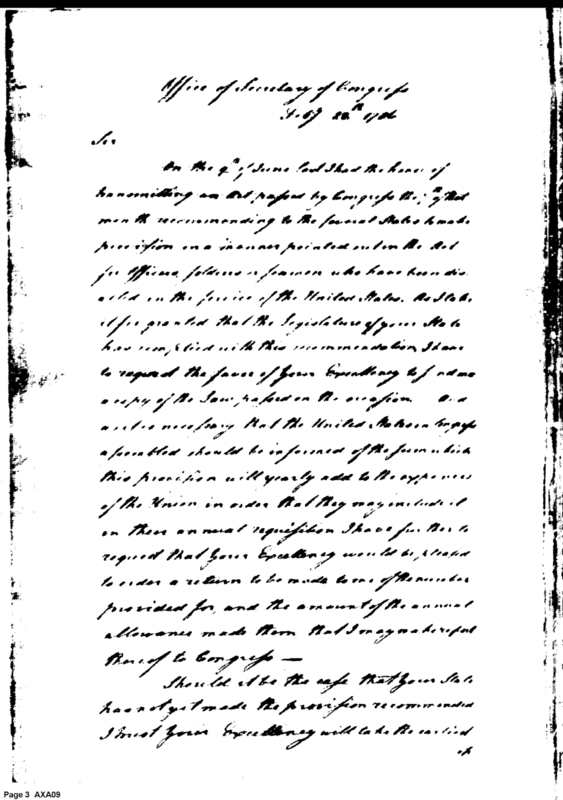 Office of Secretary of Congress
Feby 28th 1786
Sir
On the 9th of June last I had the honor of
transmitting an Act passed by Congress the 7th of that
month recommending to the several States to make
provision in a manner pointed out in the Act
for Officers, soldiers or seamen who have been dis
abled in the service of the United States. As I take
it for granted that the legislature of your State
has complied with this recommendation, I have
to request the favor of Your Excellency to send me
a copy of the Law passed on the occasion. And
as it is necessary that the United States in Congress
assembled should be informed of the sum which
this provision will yearly add to the expences
of the Union in order that they may include it
in their annual requisition I have further to
request that Your Excellency would be pleased
to order a return to be made to me of the number
provided for, and the amount of the annual
allowance made them that I may make report
thereof to Congress —
Should it be the case that Your State
has not yet made the provision recommended
I trust Your Excellency will take the earliest
op
Page 3 AXA09